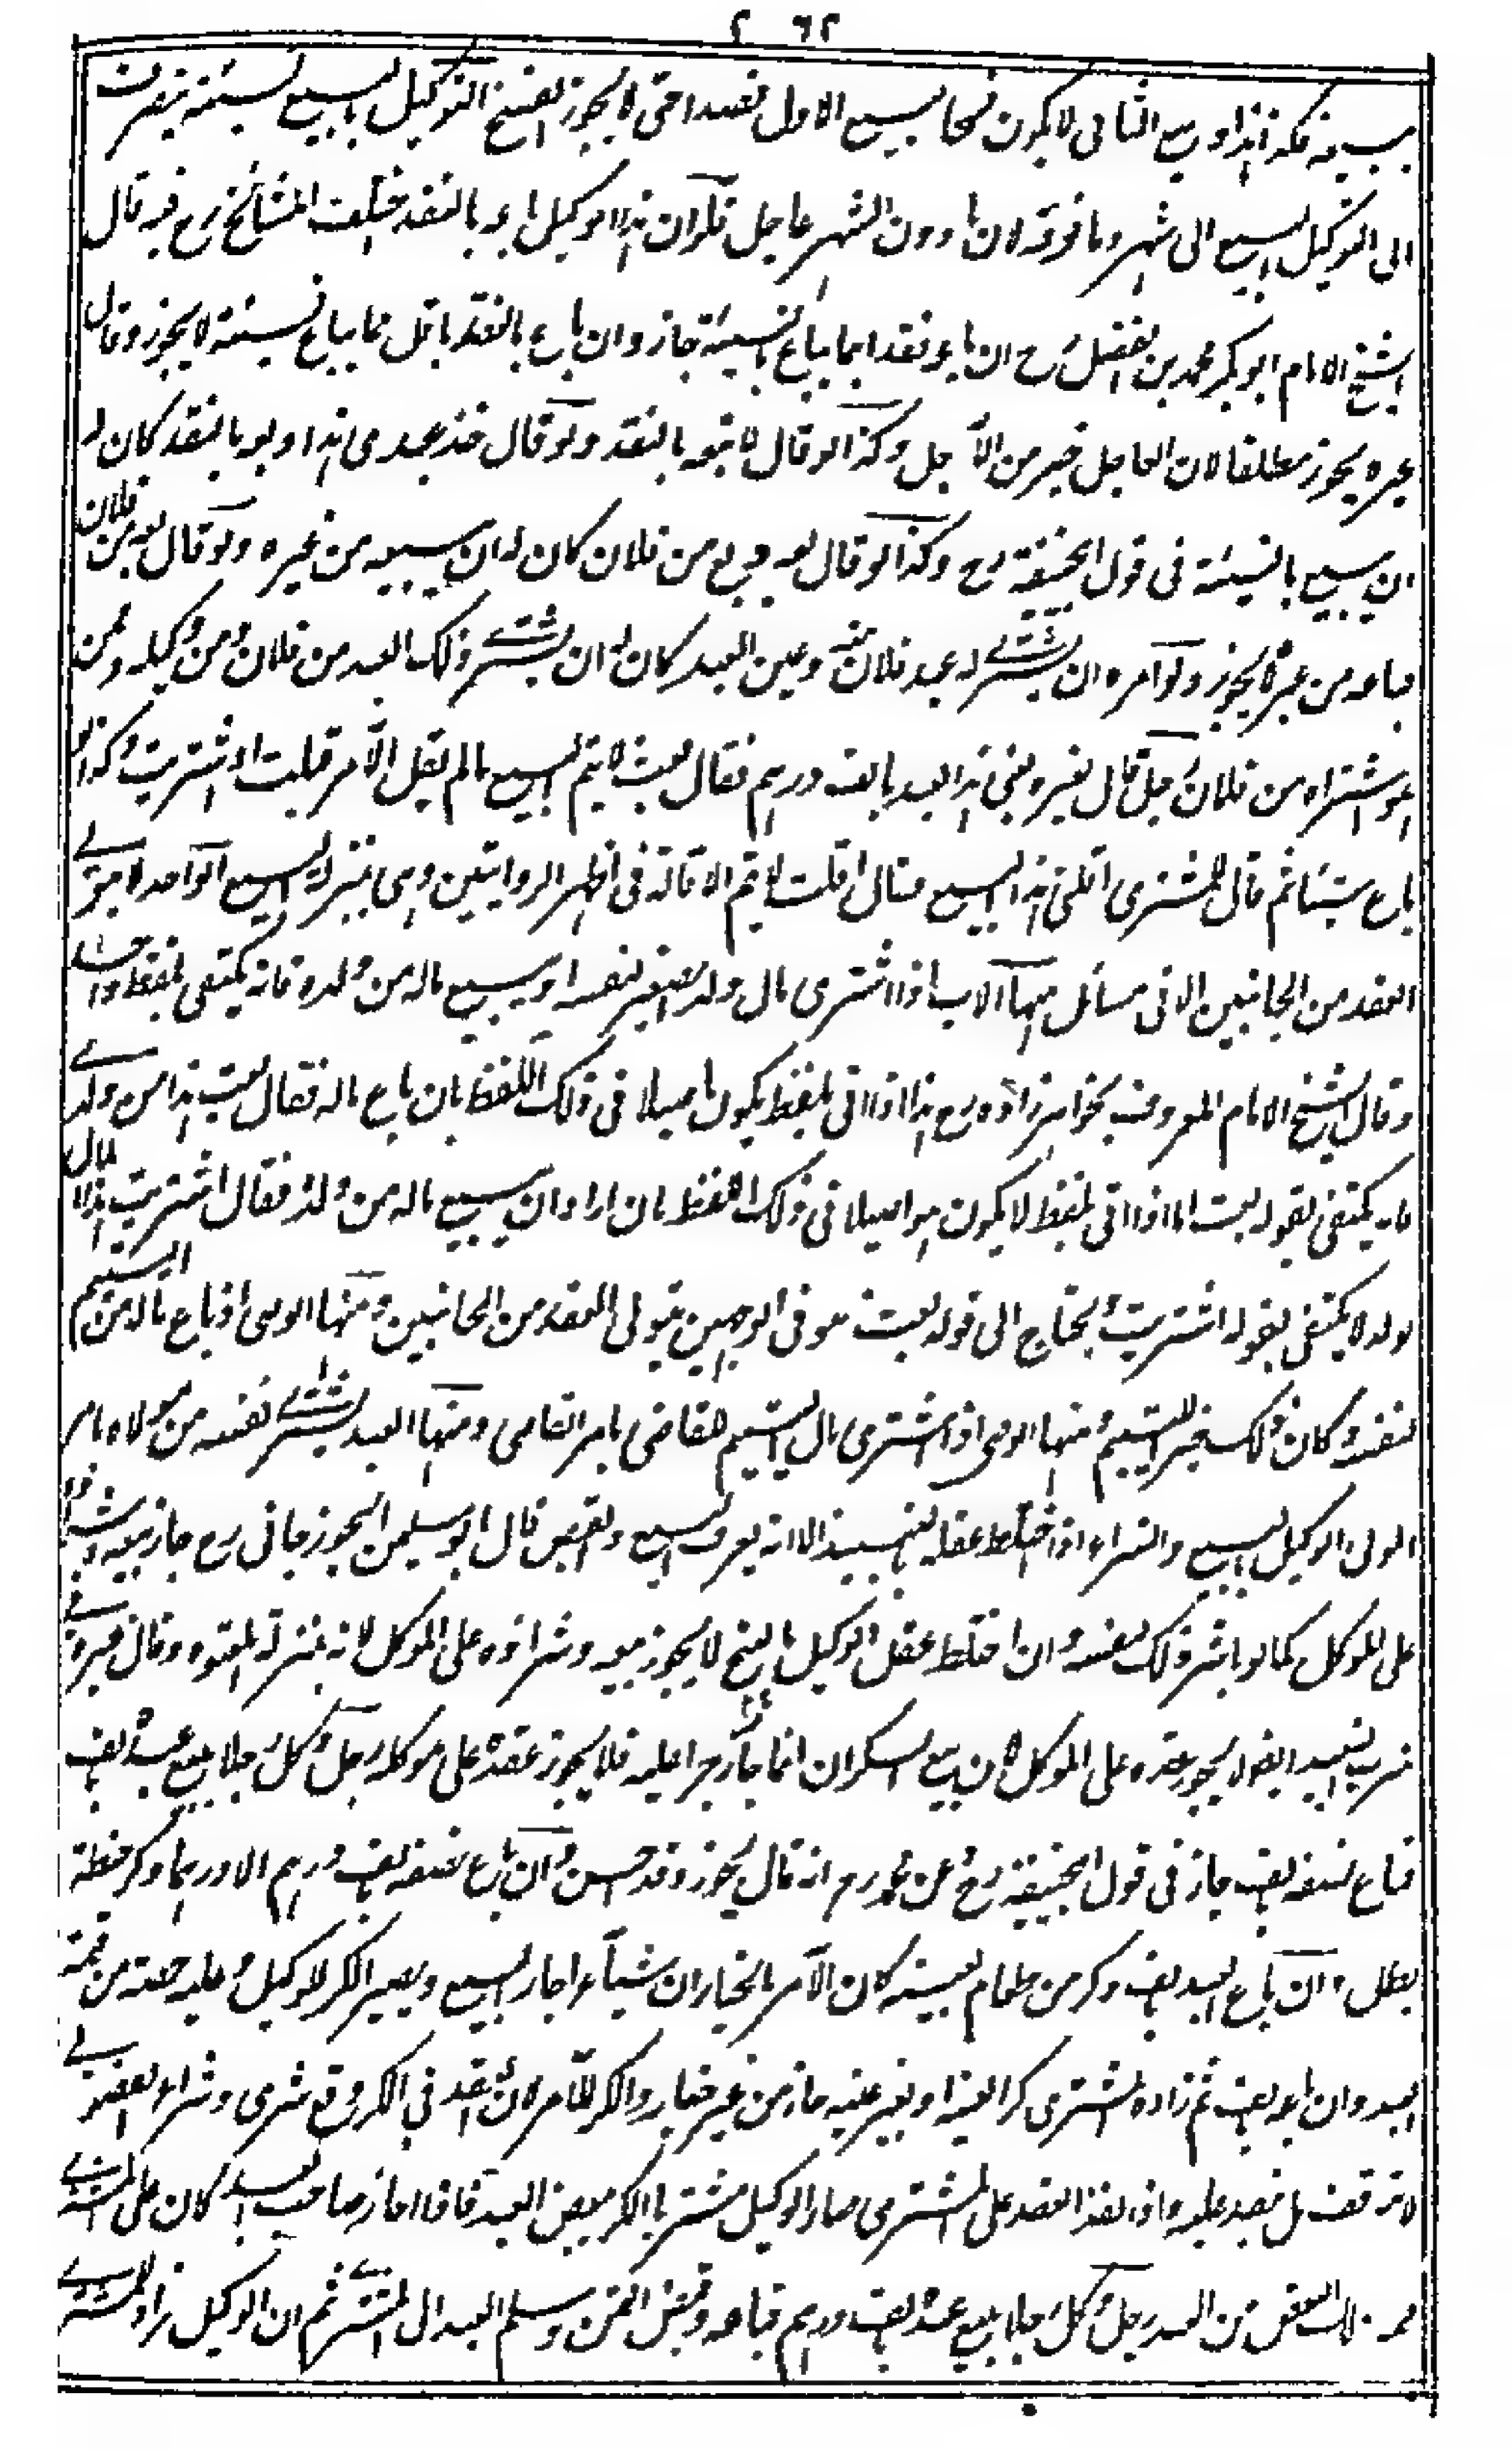 ٢٦٢
ببيعه فكذا هذا وبيع الثاني لا يكون فسخا لبيع الاول قصدا حتى لا يجوز الفسخ التوكيل بالبيع نسيئة ينصرف
الى التوكيل بالبيع الى شهر وما فوقه لان ما دون الشهر عاجل فلو ان هذا الوكيل باعه بالنقد اختلف المشائخ رح فيه قال
الشيخ الامام ابو بكر محمد بن الفضل رح ان باعه نقدا بما يباع بالنسيئة جاز وان باع بالنقد باقل مما يباع نسيئة لا يجوز وقال
غيره يجوز مطلقا لان العاجل خير من الآجل وكذا لو قال لا تبعه بالنقد ولو قال خذ عبدي هذا وبعه بالنقد كان له
ان يبيع بالنسيئة في قول ابيحنيفة رح وكذا لو قال بعه وبع من فلان كان له ان يبيعه من غيره ولو قال بعه من فلان
فباعه من غيره لا يجوز ولو امره ان يشتري له عبد فلان وعين العبد كان له ان يشتري ذلك العبد من فلان ومن وكيله وممن
اشتراه من فلان رجل قال لغيره بعني هذا العبد بالف درهم فقال بعت لا يتم البيع ما لم يقل الآمر قبلت او اشتريت وكذا لو
باع شيئا ثم قال المشتري اقلني هذا البيع فقال اقلت لا يتم الاقالة في اظهر الروايتين وهي بمنزلة البيع الواحد لا يتولى
العقد من الجانبين الا في مسائل منها الاب اذا اشترى مال ولده الصغير لنفسه او يبيع ماله من ولده فانه يكتفي بلفظ واحد
وقال الشيخ الامام المعروف بخواهر زاده رح هذا اذا اتى بلفظ يكون اصيلا في ذلك اللفظ بان باع ماله فقال بعت هذا من ولدي
فانه يكتفى بقوله بعت اما اذا اتى بلفظ لا يكون هو اصيلا في ذلك اللفظ بان اراد ان يبيع ماله من ولده فقال اشتريت هذا المال
لولدي لا يكتفى بقوله اشتريت ويحتاج الى قوله بعت وهو في الوجهين يتولى العقد من الجانبين ومنها الوصي اذا باع ماله من اليتيم
لنفسه وكان ذلك خير لليتيم ومنها الوصي اذا اشترى مال اليتيم للقاضي بامر القاضي ومنها العبد يشتري نفسه من مولاه بامر
المولى الوكيل بالبيع والشراء اذا اختلط عقله بنبيذ الا انه يعرف البيع والقبض قال ابو سليمن الجوزجاني رح جاز بيعه وشراؤه
على الموكل كما لو باشر ذلك بنفسه وان اختلط عقل الوكيل بالبنج لا يجوز بيعه وشراؤه على الموكل لانه بمنزلة المعتوه وقال غيره في
شرب النبيذ ايضا لا يجوز عقده على الموكل لان بيع السكران انما جاز زجرا عليه فلا يجوز عقده على موكله رجل وكل رجلا ببيع عبده بالف
فباع نصفه بالف جاز في قول ابيحنيفة رح وعن محمد رح انه قال يجوز وقد احسن وان باع نصفه بالف درهم الا درهما وكر حنطة
بطل وان باع العبد بالف وكر من طعام بعينه كان الآمر بالخيار ان شاء اجاز البيع ويصير الكر للوكيل وعليه حصته من قيمة
العبد وان باعه بالف ثم زاده المشتري كرا بعينه او بغير عينه جاز من غير خيار والكر للآمر لان العقد في الكر وقع شرى وشراء الفضولي
لا يتوقف بل ينفذ عليه واذا نفذ العقد على المشتري صار الوكيل مشتريا الكر ببعض العبد فاذا اجاز صاحب العبد كان على المشتري
ذلك البعض من العبد رجل وكل رجلا ببيع عبده بالف درهم فباعه وقبض الثمن وسلم العبد الى المشتري ثم ان الوكيل زاد المشتري